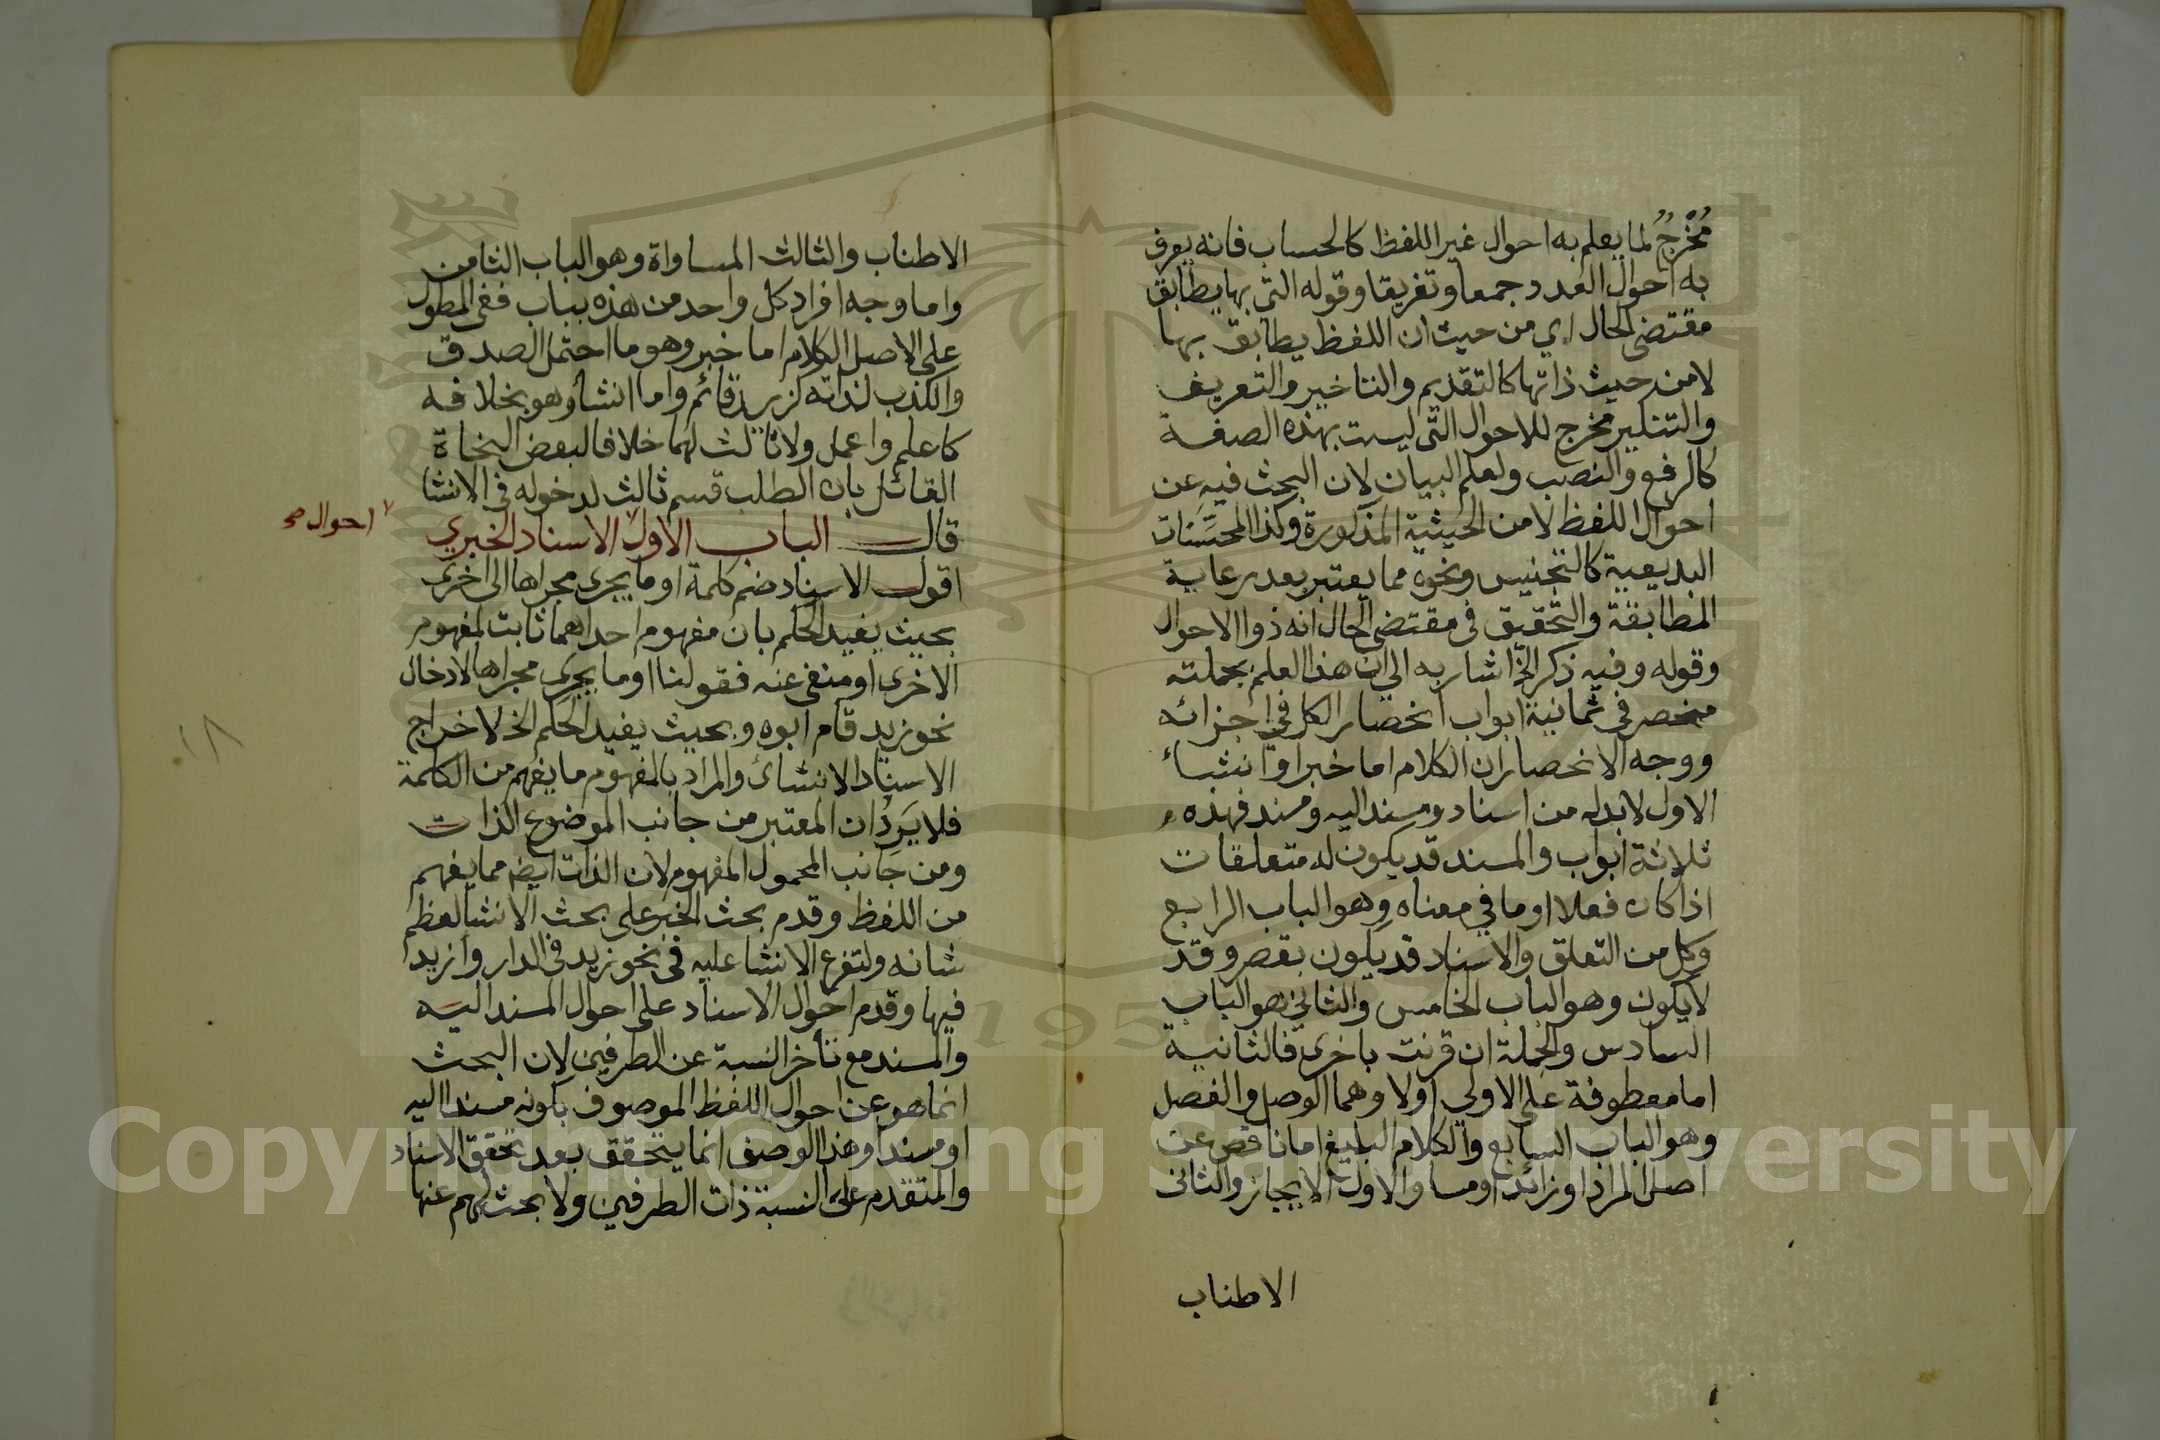 مُخْرِجٌ لما يعلم به احوال غير اللفظ كالحساب فانه يعرف
به احوال العدد جمعا وتفريقا وقوله التي بها يطابق
مقتضى الحال اي من حيث ان اللفظ يطابق بها
لا من حيث ذاتها كالتقديم والتاخير والتعريف
والتنكير مخرج للاحوال التى ليست بهذه الصفة
كالرفع والنصب ولعلم البيان لان البحث فيه عن
احوال اللفظ لا من الحيثية المذكورة وكذا المحسّنات
البديعية كالتجنيس ونحوه مما يعتبر بعد رعاية
المطابقة والتحقيق فى مقتضى الحال انه ذوا الاحوال
وقوله وفيه ذكر الخ اشار به الي ان هذا العلم بجملته
منحصر في ثمانية ابواب انحصار الكل في اجزائه
ووجه الانحصار ان الكلام اما خبر او انشاء
الاول لابد له من اسناد ومسند اليه ومسند فهذه
ثلاثة ابواب والمسند قد يكون له متعلقات
اذا كان فعلا او ما في معناه وهو الباب الرابع
وكل من التعلق والاسناد قد يكون بقصر وقد
لا يكون وهو الباب الخامس والثاني هو الباب
السادس والجملة ان قرنت باخرى فالثانية
اما معطوفة على الاولي اولا وهما الوصل والفصل
وهو الباب السابع والكلام البليغ اما ناقص عن
اصل المراد او زائد او مساو الاول الايجاز والثانى
الاطناب
الاطناب والثالث المساواة وهو الباب الثامن
واما وجه افراد كل واحد من هذه بباب ففى المطول
على الاصل الكلام اما خبر وهو ما احتمل الصدق
والكذب لذاته كزيد قائم واما انشا وهو بخلافه
كاعلم واعمل ولا ثالث لهما خلافا لبعض النحاة
القائل بان الطلب قسم ثالث لدخوله فى الانشا
قال الباب الاول الاسناد الخبري
احوال صح
اقول الاسناد ضم كلمة او ما يجرى مجراها الى اخرى
بحيث يفيد الحكم بان مفهوم احداهما ثابت لمفهوم
الاخرى او منفى عنه فقولنا او ما يجرى مجراها لادخال
نحو زيد قام ابوه وبحيث يفيد الحكم الخ لاخراج
الاسناد الانشائى والمراد بالمفهوم ما يفهم من الكلمة
فلا يَرِدُ ان المعتبر من جانب الموضوع الذات
ومن جانب المحمول المفهوم لان الذات ايض مما يفهم
من اللفظ وقدم بحث الخبر على بحث الانشا لعظم
شانه ولتفرع الانشا عليه فى نحو زيد فى الدار وازيد
فيها وقدم احوال الاسناد على احوال المسند اليه
والمسند مع تأخر النسبة عن الطرفين لان البحث
انما هو عن احوال اللفظ الموصوف بكونه مسندا اليه
او مسندا وهذا الوصف انما يتحقق بعد تحقق الاسناد
والمتقدم على النسبة ذات الطرفين ولا بحث لهم عنها
١٨
Copyright © King Saud University
1957